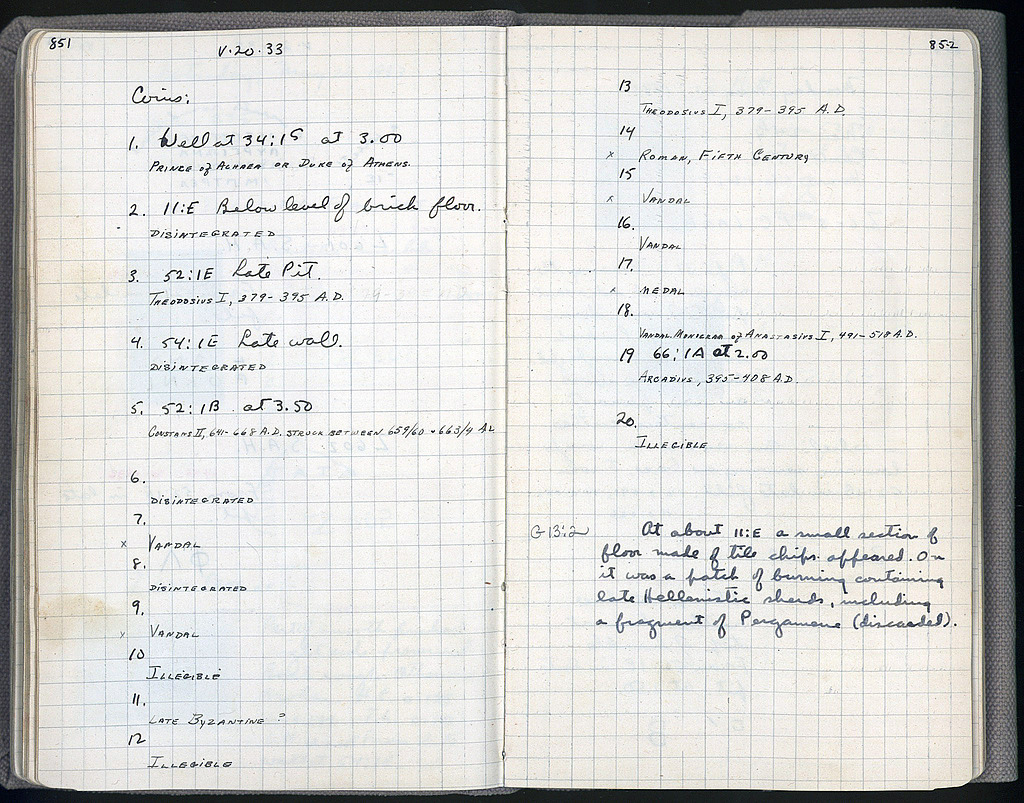 851
V·20·33
Coins:
1. Well at 34:15 at 3.00
PRINCE of ACHAEA OR DUKE of ATHENS.
2. 11:E Below level of brick floor.
DISINTEGRATED
3. 52:1E Late Pit.
THEODOSIUS I, 379-395 A.D.
4. 54:1E Late wall.
DISINTEGRATED
5. 52:1B at 3.50
CONSTANS II, 641-668 A.D. STRUCK BETWEEN 659/60 + 663/4 A.D.
6.
DISINTEGRATED
7.
x VANDAL
8.
DISINTEGRATED
9.
x VANDAL
10
ILLEGIBLE
11.
LATE BYZANTINE ?
12
ILLEGIBLE
852
13
THEODOSIUS I, 379-395 A.D.
14
x ROMAN, FIFTH CENTURY
15
x VANDAL
16.
VANDAL
17.
x MEDAL
18.
VANDAL. MONOGRAM of ANASTASIUS I, 491-518 A.D.
19 66:1A at 2.00
ARCADIUS, 395-408 A.D.
20.
ILLEGIBLE
G 13:2 At about 11:E a small section of
floor made of tile chips appeared. On
it was a patch of burning containing
late Hellenistic sherds, including
a fragment of Pergamene (discarded).